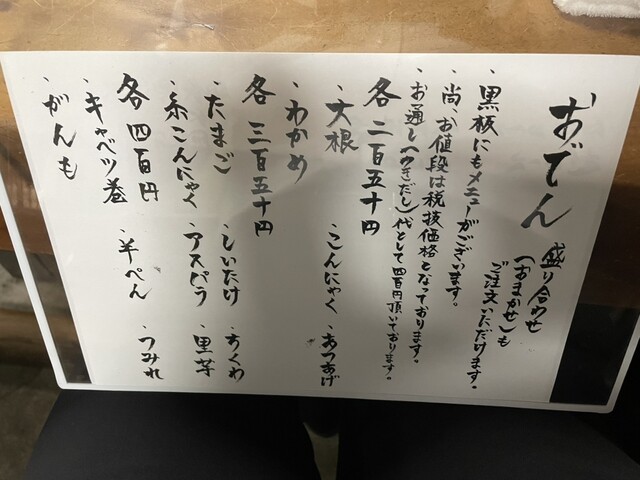 おでん 盛り合わせ
(おまかせ)も
ご注文いただけます。
・黒板にもメニューがございます。
・尚、お値段は税抜価格となっております。
・お通し(つきだし)代として四百円頂いております。
各二百五十円
・大根 ・こんにゃく ・あつあげ
・わかめ
各三百五十円
・たまご ・しいたけ ・ちくわ
・糸こんにゃく ・アスパラ ・里芋
各四百円
・キャベツ巻 ・半ぺん ・つみれ
・がんも